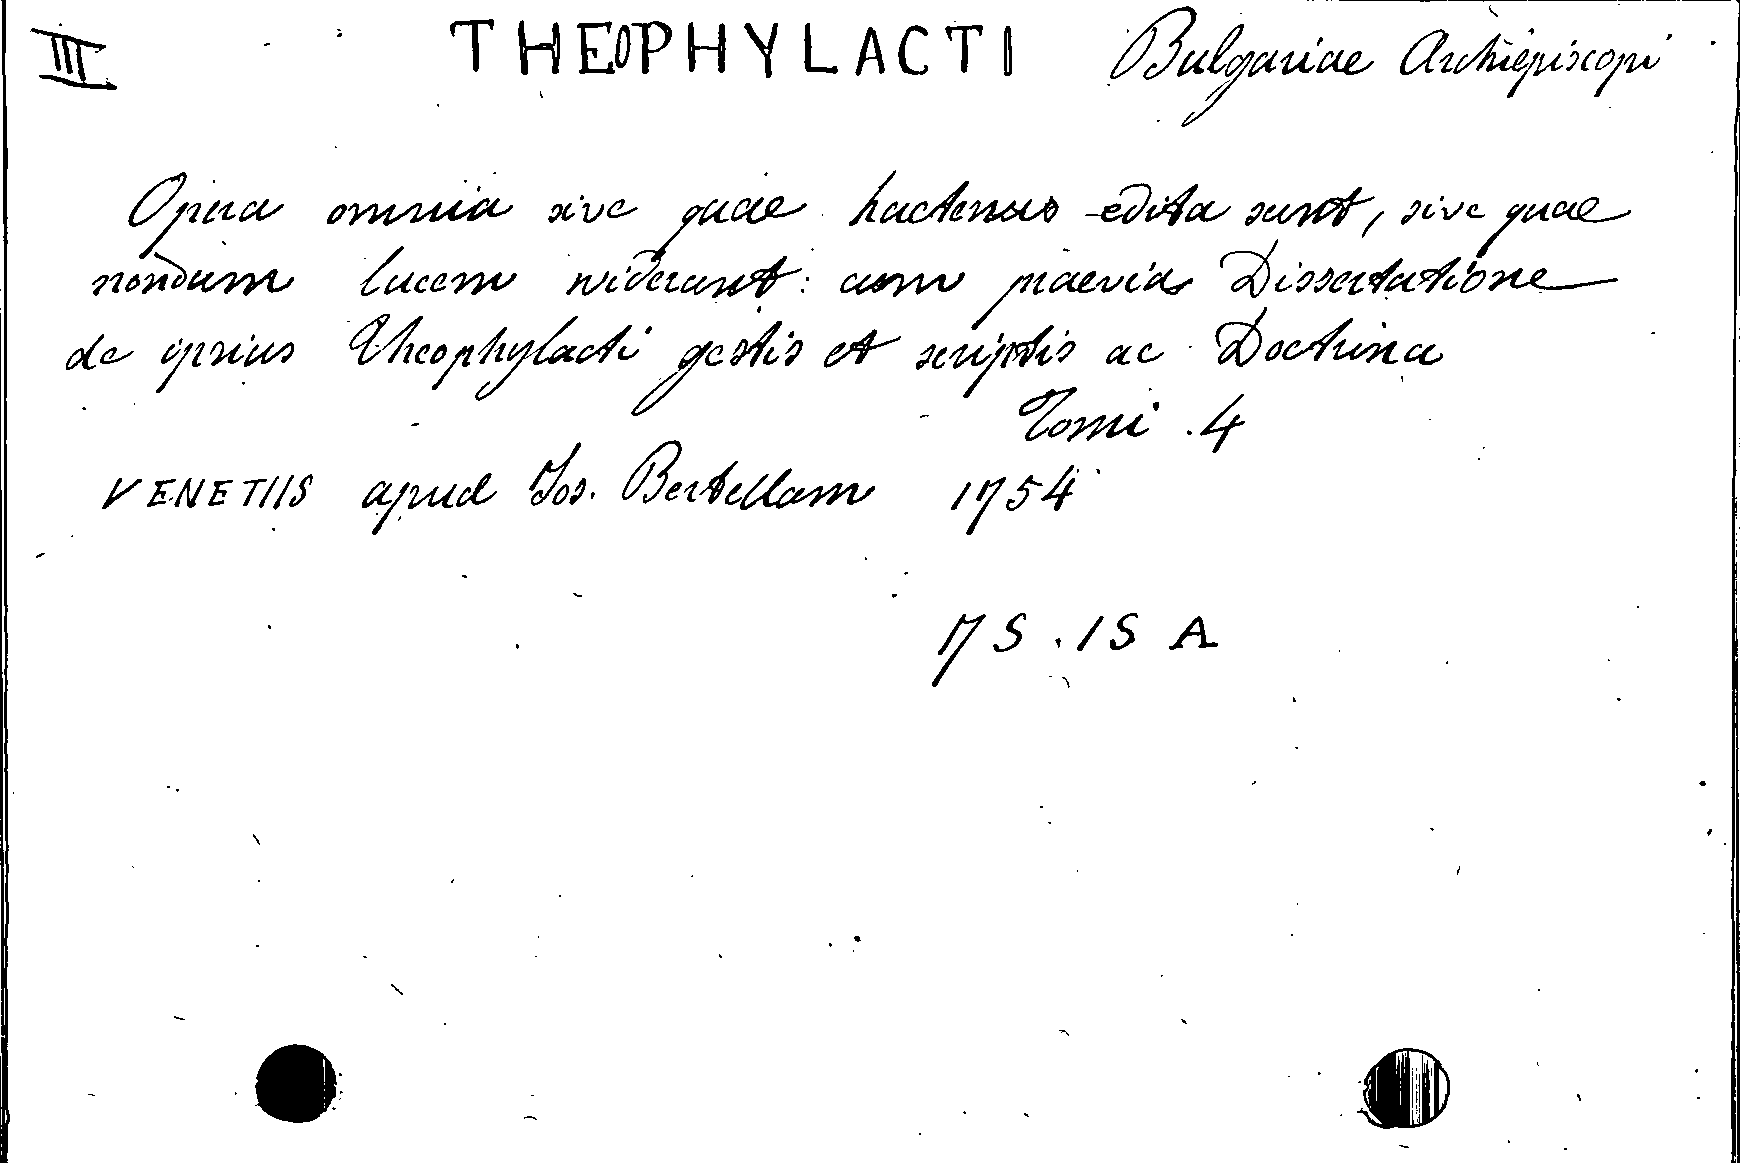 III THEOPHYLACTI Bulgariae Archiepiscopi
Opera omnia sive quae hactenus edita sunt, sive quae
nondum lucem viderunt: cum praevia Dissertatione
de ipsius Theophylacti gestis et scriptis ac Doctrina
Tomi. 4
VENETIIS apud Jos. Bertellam 1754
75.15 A